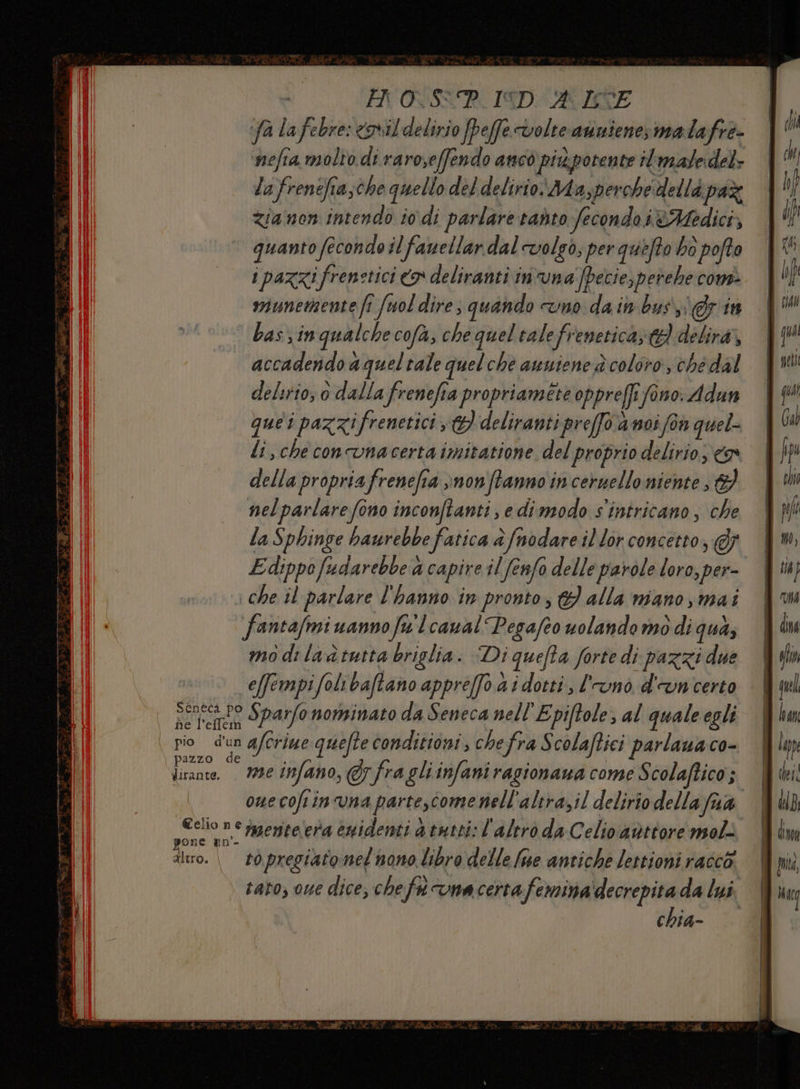 HOSPIDALE
fa la febre: &amp; il delirio ſpeſſe volte auuiene, ma la fre-
neſia molto di raro, eſſendo anco più potente il male del-
la freneſia, che quello del delirio. Ma, perche della paz
zia non intendo io di parlare tanto ſecondo i Medici,
quanto ſecondo il fauellar dal volgo, per queſto hò poſto
i pazzi frenetici &amp; deliranti in vna ſpecie, perche com-
munemente ſi ſuol dire, quando vno da in bus, &amp; in
bas, in qualche coſa, che quel tale frenetica, &amp; delira,
accadendo à quel tale quel che auuiene à coloro, che dal
delirio, ò dalla freneſia propriamẽte oppreſſi ſono. Adun
que i pazzi frenetici, &amp; deliranti preſſo à noi ſon quel-
li, che con vna certa imitatione del proprio delirio, &amp;
della propria freneſia, non ſtanno in ceruello niente, &amp;
nel parlare ſono inconſtanti, e di modo s'intricano, che
la Sphinge haurebbe fatica à ſnodare il lor concetto, &amp;
Edippo ſudarebbe à capire il ſenſo delle parole loro, per-
che il parlare l'hanno in pronto, &amp; alla mano, mai
fantaſmi uanno ſu'l caual Pegaſeo uolando mò di quà,
mò di là à tutta briglia. Di queſta ſorte di pazzi due
eſſempi ſoli baſtano appreſſo à i dotti, l'vno d'vn certo
Seneca po
ne l'eſſem
pio d'un
pazzo de
lirante.
Sparſo nominato da Seneca nell'Epiſtole, al quale egli
aſcriue queſte conditioni, che fra Scolaſtici parlaua co-
me inſano, &amp; fra gli inſani ragionaua come Scolaſtico;
oue coſi in vna parte, come nell'altra, il delirio della ſua
Celio ne
pone un'-
altro.
mente era euidenti à tutti: l'altro da Celio auttore mol-
to pregiato nel nono libro delle ſue antiche lettioni raccõ
tato, oue dice, che fù vna certa femina decrepita da lui
chia-